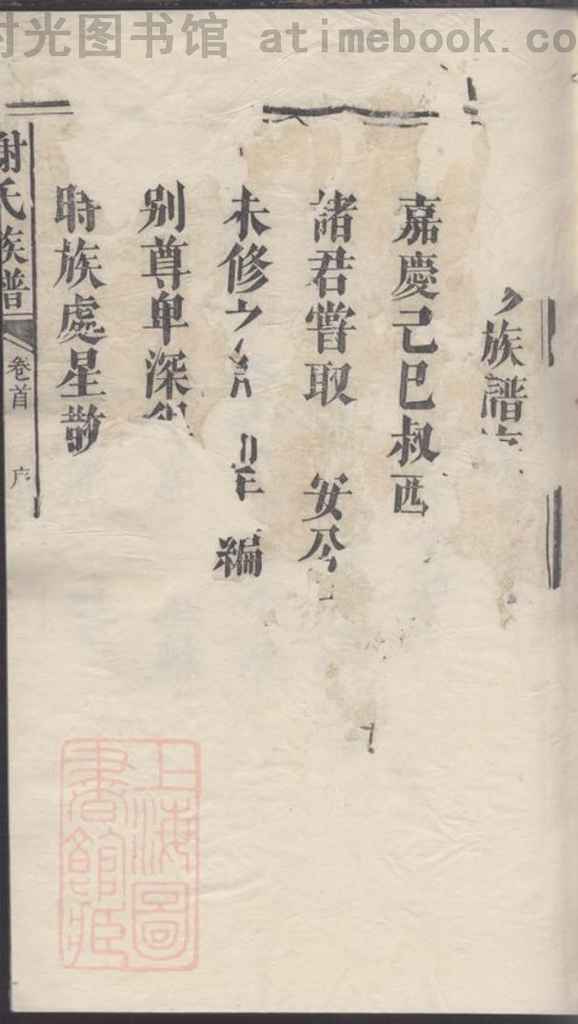 时光图书馆 atimebook.co
族譜
嘉慶己巳叔西
諸君嘗取 安今
未修 編
别尊卑深
時族處星散
謝氏族譜
卷首 序
上海圖
書館藏